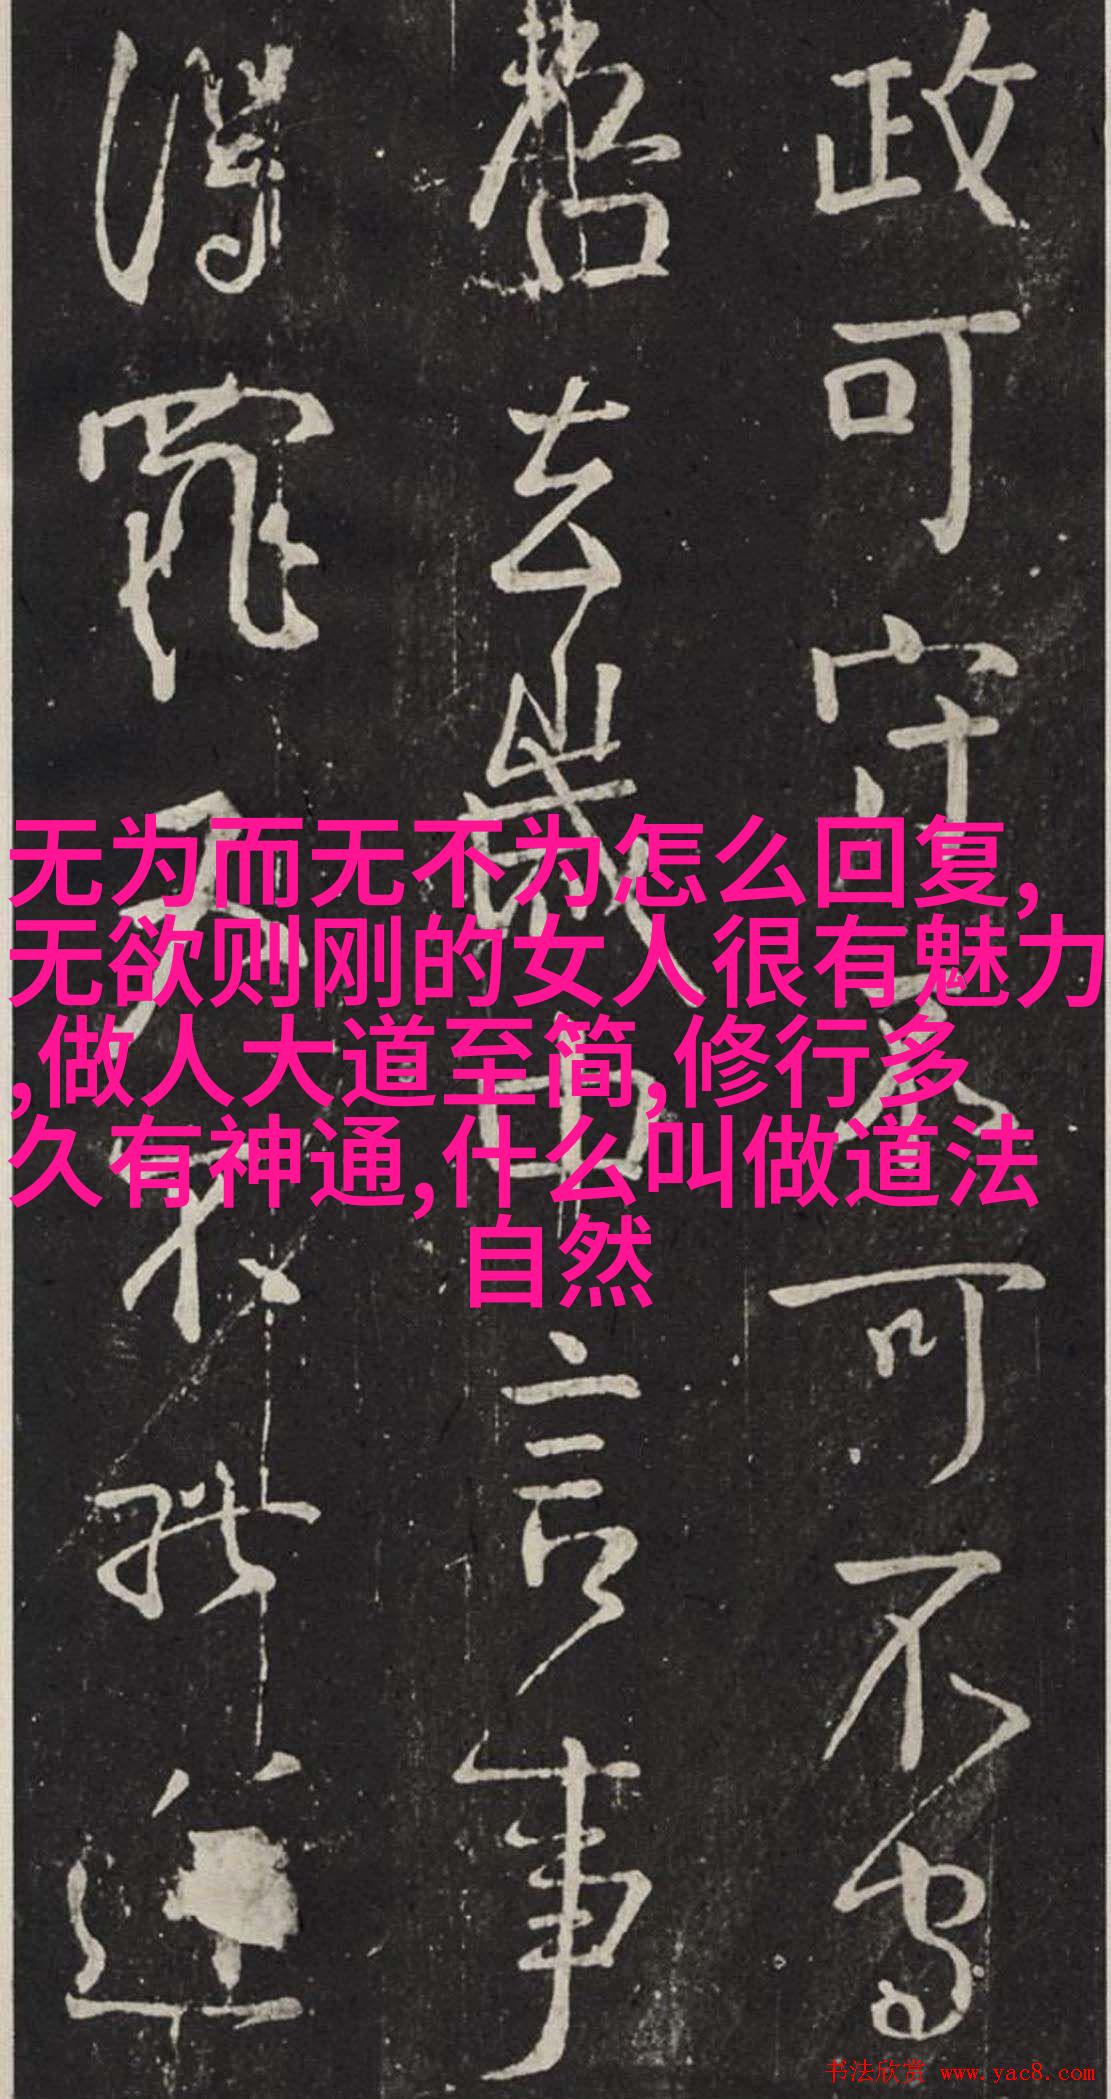 政可守不可不守
吾去岁中言事
得罪又不能逆
无为而无不为怎么回复,
无欲则刚的女人很有魅力
,做人大道至简,修行多
久有神通,什么叫做道法
自然
书法欣赏 www.yac8.com